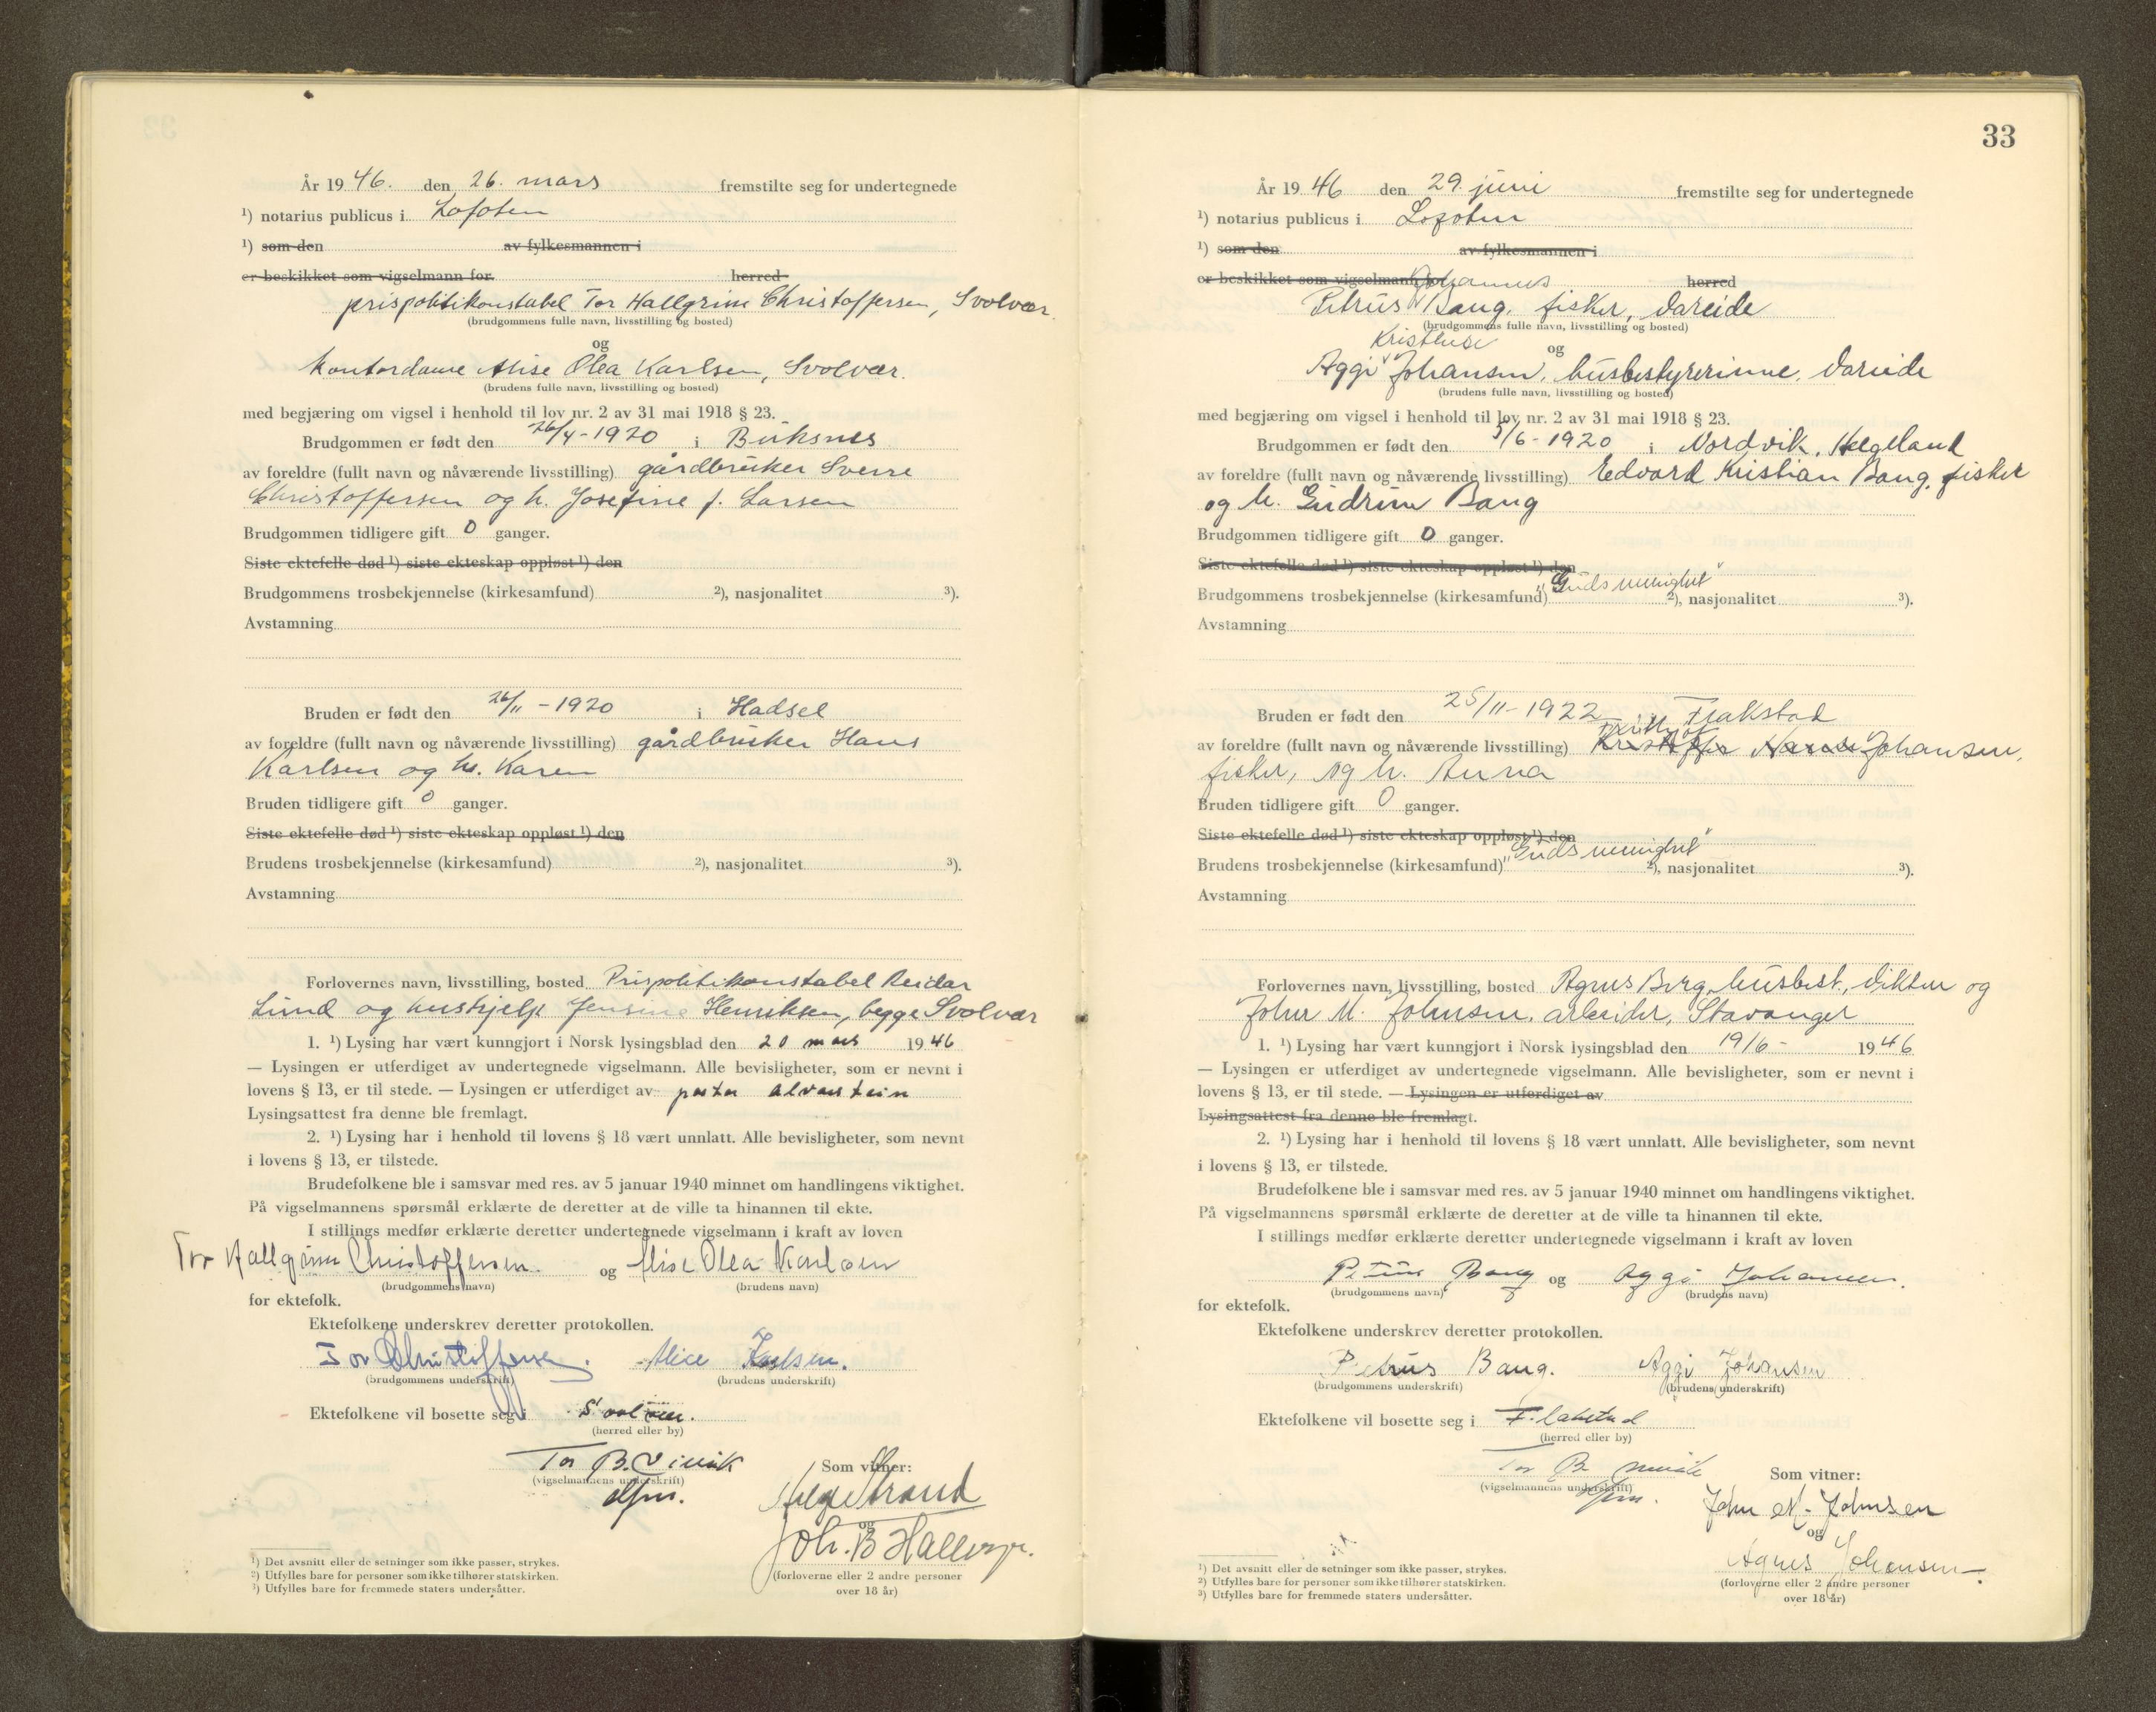 År 1946. den 26. mars fremstilte seg for undertegnede
¹) notarius publicus i Lofoten
¹) som den av fylkesmannen i
er beskikket som vigselmann for herred
prispolitikonstabel Tor Hallgrim Christoffersen, Svolvær
(brudgommens fulle navn, livsstilling og bosted)
og
kontordame Alise Olea Karlsen, Svolvær.
(brudens fulle navn, livsstilling og bosted)
med begjæring om vigsel i henhold til lov nr. 2 av 31 mai 1918 § 23.
Brudgommen er født den 26/4-1920 i Buksnes
av foreldre (fullt navn og nåværende livsstilling) gårdbruker Sverre
Christoffersen og h. Josefine f. Larsen
Brudgommen tidligere gift 0 ganger.
Siste ektefelle død ¹) siste ekteskap oppløst ¹) den
Brudgommens trosbekjennelse (kirkesamfund) ²), nasjonalitet ³).
Avstamning
Bruden er født den 26/11-1920 i Hadsel
av foreldre (fullt navn og nåværende livsstilling) gårdbruker Hans
Karlsen og h. Karen
Bruden tidligere gift 0 ganger.
Siste ektefelle død ¹) siste ekteskap oppløst ¹) den
Brudens trosbekjennelse (kirkesamfund) ²), nasjonalitet ³).
Avstamning
Forlovernes navn, livsstilling, bosted Prispolitikonstabel Reidar
Lund og hushjelp Jensine Henriksen, begge Svolvær
1. ¹) Lysing har vært kunngjort i Norsk lysingsblad den 20 mars 1946
— Lysingen er utferdiget av undertegnede vigselmann. Alle bevisligheter, som er nevnt i
lovens § 13, er til stede. — Lysingen er utferdiget av pastor Alvastein
Lysingsattest fra denne ble fremlagt.
2. ¹) Lysing har i henhold til lovens § 18 vært unnlatt. Alle bevisligheter, som nevnt
i lovens § 13, er tilstede.
Brudefolkene ble i samsvar med res. av 5 januar 1940 minnet om handlingens viktighet.
På vigselmannens spørsmål erklærte de deretter at de ville ta hinannen til ekte.
I stillings medfør erklærte deretter undertegnede vigselmann i kraft av loven
Tor Hallgrim Christoffersen. og Alise Olea Karlsen
(brudgommens navn) (brudens navn)
for ektefolk.
Ektefolkene underskrev deretter protokollen.
Tor Christoffersen. Alice Karlsen.
(brudgommens underskrift) (brudens underskrift)
Ektefolkene vil bosette seg i Svolvær.
(herred eller by)
Tor B.
(vigselmannens underskrift)
Som vitner:
Helge Strand
og
Joh. B
(forloverne eller 2 andre personer
over 18 år)
¹) Det avsnitt eller de setninger som ikke passer, strykes.
²) Utfylles bare for personer som ikke tilhører statskirken.
³) Utfylles bare for fremmede staters undersåtter.
33
År 1946 den 29. juni fremstilte seg for undertegnede
¹) notarius publicus i Lofoten
¹) som den av fylkesmannen i
er beskikket som vigselmann for herred
Johannes
Petrus Bang, fisker, Vareide
(brudgommens fulle navn, livsstilling og bosted)
Kristense og
Aggi Johansen, husbestyrerinne, Vareide
(brudens fulle navn, livsstilling og bosted)
med begjæring om vigsel i henhold til lov nr. 2 av 31 mai 1918 § 23.
Brudgommen er født den /6-1920 i Nordvik, Helgeland
av foreldre (fullt navn og nåværende livsstilling) Edvard Kristian Bang, fisker
og h. Gudrun Bang
Brudgommen tidligere gift 0 ganger.
Siste ektefelle død ¹) siste ekteskap oppløst ¹) den
Brudgommens trosbekjennelse (kirkesamfund) "Guds menighet" ²), nasjonalitet ³).
Avstamning
Bruden er født den 25/11-1922 i Flakstad
av foreldre (fullt navn og nåværende livsstilling) Johansen,
fisker, og h. Anna
Bruden tidligere gift 0 ganger.
Siste ektefelle død ¹) siste ekteskap oppløst ¹) den
Brudens trosbekjennelse (kirkesamfund) "Guds menighet" ²), nasjonalitet ³).
Avstamning
Forlovernes navn, livsstilling, bosted Agnes Berg, husbest., Vikten og
John M. Johnsen, arbeider, Stavanger
1. ¹) Lysing har vært kunngjort i Norsk lysingsblad den 19/6- 1946
— Lysingen er utferdiget av undertegnede vigselmann. Alle bevisligheter, som er nevnt i
lovens § 13, er til stede. — Lysingen er utferdiget av
Lysingsattest fra denne ble fremlagt.
2. ¹) Lysing har i henhold til lovens § 18 vært unnlatt. Alle bevisligheter, som nevnt
i lovens § 13, er tilstede.
Brudefolkene ble i samsvar med res. av 5 januar 1940 minnet om handlingens viktighet.
På vigselmannens spørsmål erklærte de deretter at de ville ta hinannen til ekte.
I stillings medfør erklærte deretter undertegnede vigselmann i kraft av loven
Petrus Bang og Aggi Johansen.
(brudgommens navn) (brudens navn)
for ektefolk.
Ektefolkene underskrev deretter protokollen.
Petrus Bang. Aggi Johansen
(brudgommens underskrift) (brudens underskrift)
Ektefolkene vil bosette seg i Flakstad
(herred eller by)
Tor B
(vigselmannens underskrift)
Som vitner:
John M. Johnsen
og
Agnes Johansen
(forloverne eller 2 andre personer
over 18 år)
¹) Det avsnitt eller de setninger som ikke passer, strykes.
²) Utfylles bare for personer som ikke tilhører statskirken.
³) Utfylles bare for fremmede staters undersåtter.